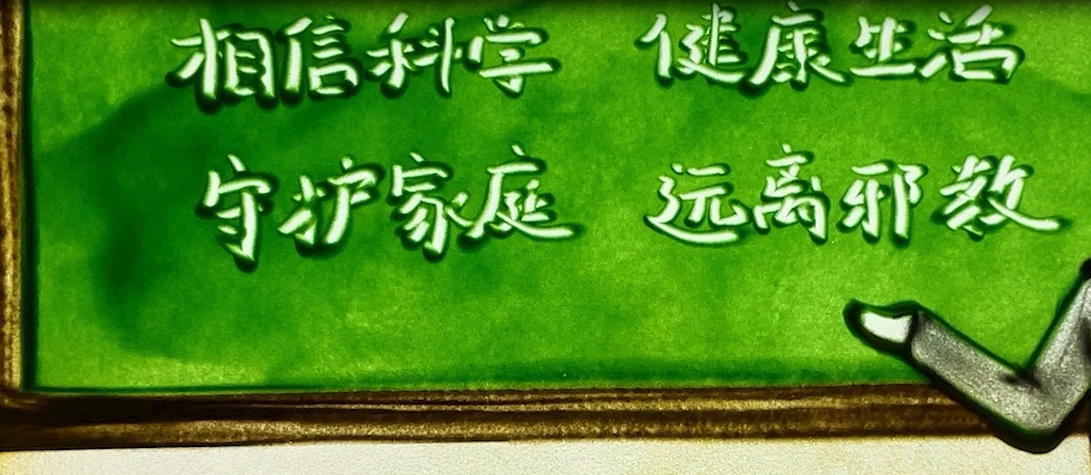 相信科学 健康生活
守护家庭 远离邪教